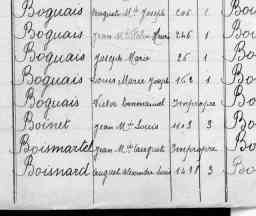 Boguais Auguste Mie Joseph 206 1 Boi
Boguais Jean Mie 246 1 Boi
Boguais Joseph Marie 26 1 Bo
Boguais Louis Marie Joseph 162 1 Bo
Boguais Victor Emmanuel Impropre Bo
Boinet Jean Mie Louis 1103 3 Bo
Boismartel Jean Mie Auguste Impropre Bo
Boisnard Auguste Alexandre Louis 1438 3 Bo